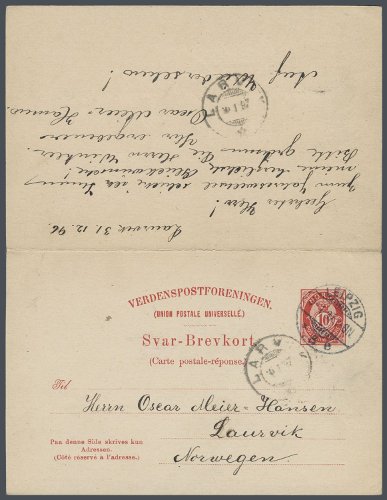 Laurvik 31.12.96
Geehrter Herr!
Zum Jahreswechsel sende ich Ihnen
meine herzlichsten Glückwünsche!
Bitte grüssen Sie Herrn Winkler.
Ihr ergebener
Oscar Meier-Hansen
Auf Wiedersehen!
LARVIK
I 97
VERDENSPOSTFORENINGEN.
(UNION POSTALE UNIVERSELLE.)
Svar-Brevkort.
(Carte postale-réponse.)
10
LEIPZIG
LARVIK
Til
Herrn Oscar Meier-Hansen
Laurvik
Norwegen.
Paa denne Side skrives kun
Adressen.
(Côté réservé à l'adresse.)